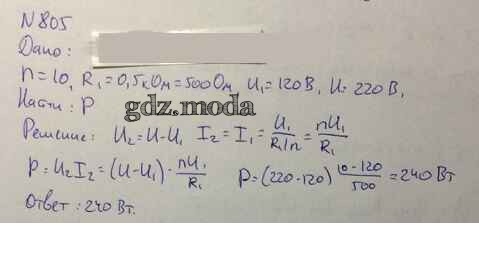 N 805
Дано:
n = 10, R₁ = 0,5 кОм = 500 Ом, U₁ = 120 В, U = 220 В,
Найти: P
gdz.moda
Решение: U₂ = U - U₁ I₂ = I₁ = U₁/(R₁/n) = nU₁/R₁
P = U₂I₂ = (U - U₁) · nU₁/R₁ P = (220 - 120) 10 - 120/500 = 240 Вт
Ответ: 240 Вт.